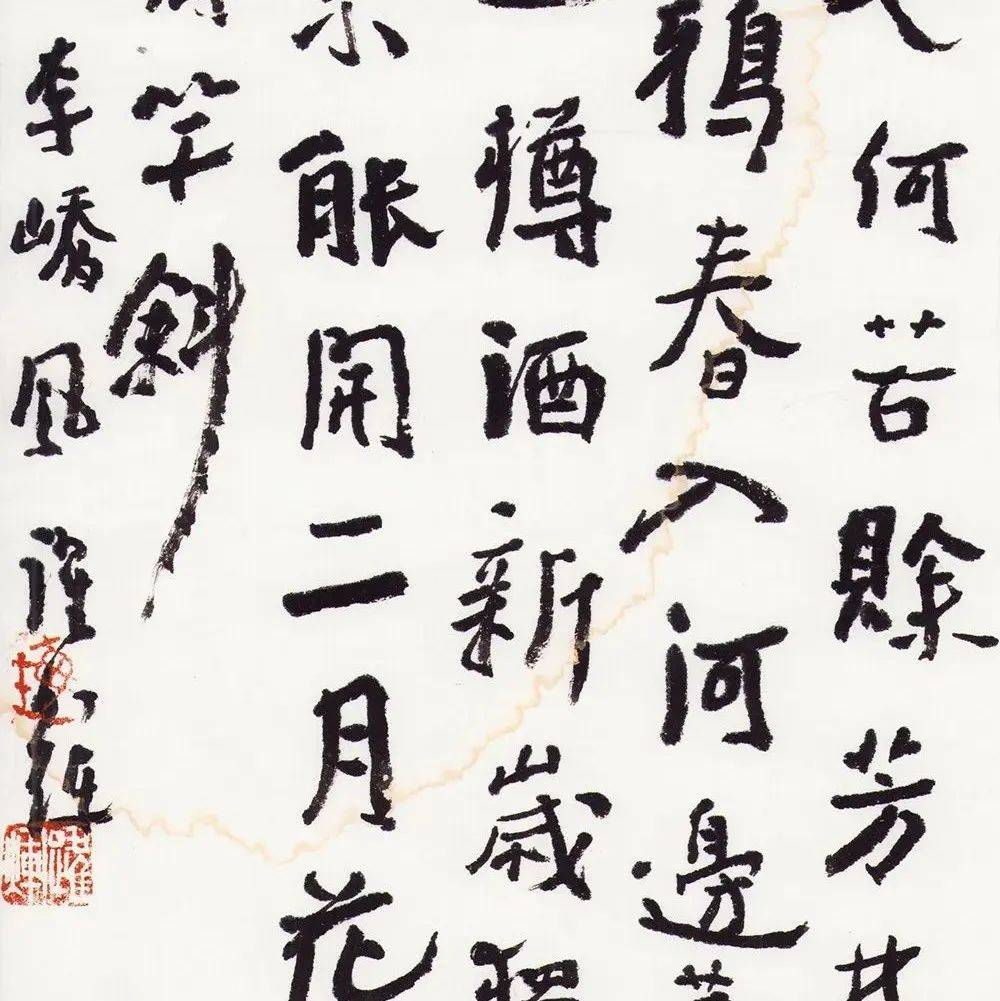 何苦賒芳
鴉春入河邊
樽酒新歲
能開二月花
竿斜
李嶠風